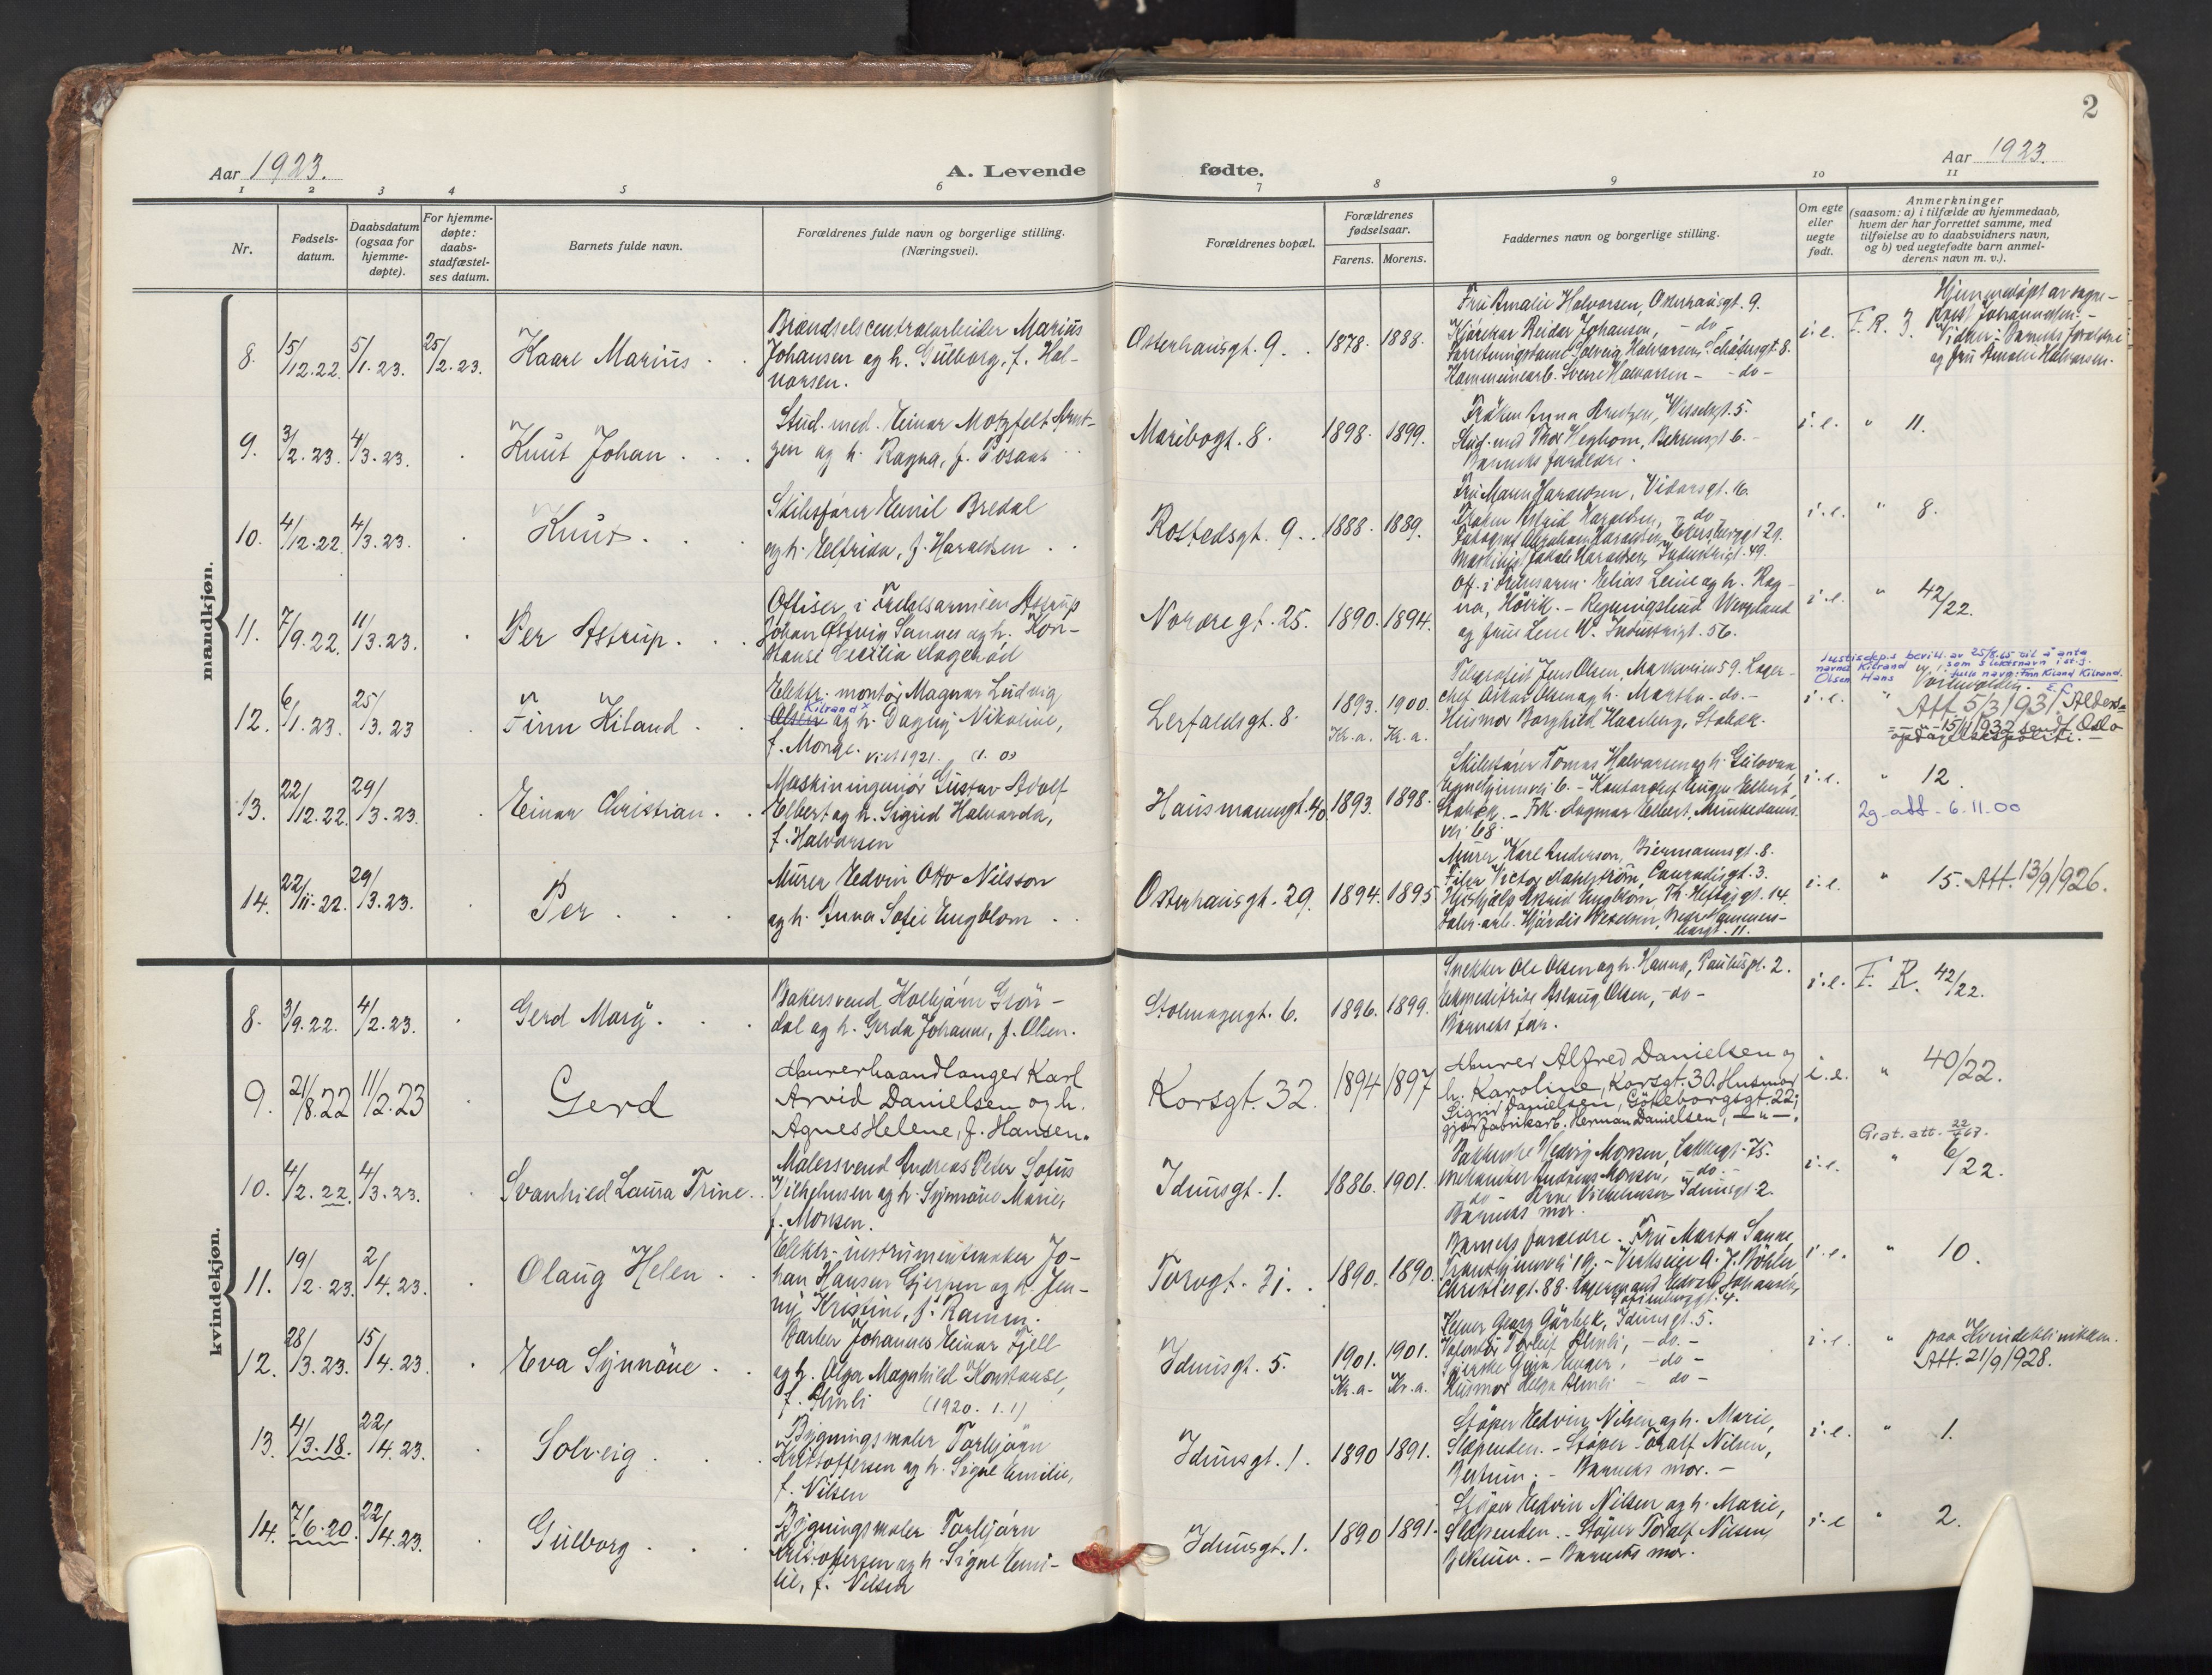 2
Aar 1923.
A. Levende
fødte.
Aar 1923.
1 2 3 4 5 6 7 8 9 10 11
Nr.
Fødsels-
datum.
Daabsdatum
(ogsaa for
hjemme-
døpte).
For hjemme-
døpte:
daabs-
stadfæstel-
ses datum.
Barnets fulde navn.
Forældrenes fulde navn og borgerlige stilling.
(Næringsvei).
Forældrenes bopæl.
Forældrenes
fødselsaar.
Farens. Morens.
Faddernes navn og borgerlige stilling.
Om egte
eller
uegte
født.
Anmerkninger
(saasom: a) i tilfælde av hjemmedaab,
hvem der har forrettet samme, med
tilføielse av to daabsvidners navn,
og b) ved uegtefødte barn anmel-
derens navn m. v.).
mandkjøn.
8. 15/12.22. 5/1.23. 25/2.23. Kaare Marius
Brændselscentralarbeider Marius
Johansen og h. Gulborg, f. Hal-
vorsen.
Osterhausgt. 9. 1878. 1888.
Fru Amalie Halvorsen, Osterhausgt. 9.
Reidar Johansen, - do -
Solveig Halvorsen, Schäfersgt. 8.
Kommunearb. Sverre Halvorsen - do -
i.e. F.R. 3.
Hjemmedøpt av sogne-
prest Johannessen. -
Vidner: Barnets forældre
og fru Amalie Halvorsen.
9. 3/2.23. 4/3.23. Knut Johan
Stud. med. Einar Motzfelt Arnt-
zen og h. Ragna, f.
Maribogt. 8. 1898. 1899.
Frøken Anna Arntzen, Wesselsgt. 5.
Stud. med. Thor
Barnets forældre.
i.e. " 11.
10. 4/12.22. 4/3.23. Knut
Skibsfører Emil Bredal
og h. Elfrida, f. Haraldsen
Rostedsgt. 9. 1888. 1889.
Fru Maren Haraldsen, Vidarsgt. 16.
Frøken Astrid Haraldsen, - do -
Fotograf Abraham Haraldsen,
Haraldsen, Industrigt. 49.
i.e. " 8.
11. 7/9.22. 11/3.23. Per Astrup
Offiser i Frelsesarmeen Astrup
Johan Sannes og h. Kon-
stanse Cecilia
Nordregt. 25. 1890. 1894.
Off. i Frelsesarm. Elias Leine og h. Rag-
na, Høvik. - Wergeland
og frue Lene W. Industrigt. 56.
i.e. " 42/22.
12. 6/1.23. 25/3.23 Finn Kiland
Elektr. montør Magnus Ludvig
Olsen Kilrand x og h. Dagny Nikoline,
f. Monge. viet 1921.
Lerfaldsgt. 8. 1893. 1900.
Kr.a. Kr.a.
Jens Olsen, Markveien 59. Lager-
chef Oskar Olsen og h. Martha - do. -
Husmor Borghild Haarberg, Stabæk.
i.e.
Justisdep.s bevill. av 25/8.65 til å anta
navnet Kilrand som slektsnavn i st. f.
Olsen. Hans fulle navn: Finn Kiland Kilrand.
Att 5/3/931 Alders-
15/11/932 sendt Oslo
opdagelsespoliti.
13. 22/12.22. 29/3.23. Einar Christian
Maskiningeniør Gustav Adolf
Elbert og h. Sigrid Halvarda,
f. Halvorsen
Hausmannsgt. 40. 1893. 1898.
Skibsfører Tomas Halvorsen og h.
6. - Kontorchef Elbert,
Stabæk. - Frk. Dagmar Elbert, Munkedams-
vei 68.
i.e. " 12.
2g. att. 6.11.00
14. 22/11.22. 29/3.23. Per
Murer Edvin Otto Nilsson
og h. Anna Sofie Engblom
Osterhausgt. 29. 1894. 1895
Murer Karl Anderson, Biermannsgt. 8.
Filer Victor Dahlstrøm, Conradisgt. 3.
Astrid Engblom, Th. Heftyesgt. 14.
i.e. " 15. Att. 13/9/926.
kvindekjøn.
8. 3/9.22. 4/2.23. Gerd Mary
Bakersvend Kolbjørn Grøn-
dal og h. Gerda Johanne, f. Olsen.
Stolmagergt. 6. 1896. 1899.
Snekker Ole Olsen og h. Hanna, Pauluspl. 2.
Ekspeditrise Aslaug Olsen, - do -
Barnets far.
i.e. F. R. 42/22.
9. 21/8.22 11/2.23 Gerd
Murerhaandlanger Karl
Arvid Danielsen og h.
Agnes Helene, f. Hansen.
Korsgt. 32. 1894 1897
Murer Alfred Danielsen og
h. Karoline, Korsgt. 30. Husmor
Sigrid Danielsen, Göteborgsgt. 22;
gjørtfabrikarb. Herman Danielsen, - " -.
i.e. " 40/22.
10. 4/2.22. 4/3.23. Svanhild Laura Trine
Malersvend Andreas Peter Sofus
Vilhelmsen og h. Synnøve Marie,
f. Monsen.
Idunsgt. 1. 1886. 1901.
Hedvig Monsen, 75.
Mekaniker Andreas Monsen, - do. -
- do - Arne Vilhelmsen, Idunsgt. 2.
Barnets mor.
i.e. " 6/22.
Grat. att. 22/
11. 19/2.23. 2/4.23. Olaug Helen
Elektr. instrumentmaker Jo-
han Hansen Gjerpen og h. Jen-
ny Kristine, f. Ramm.
Torvgt. 31. 1890. 1890.
Barnets forældre. - Fru Marta Sanne,
Trondhjemsvei 19.
Christiesgt. 88.
i.e. " 10.
12. 28/3.23. 15/4.23. Eva Synnøve
Barber Johannes Einar Fjell
og h. Olga Magnhild Konstanse,
f. Almli (1920. 1.1)
Idunsgt. 5. 1901. 1901.
Kr.a. Kr.a.
Georg Gürbek, Idunsgt. 5.
Almli, - do. -
- do -
Husmor Helga Almli - do -
i.e. " paa Kvindeklinikken.
Att. 21/9/928.
13. 4/3.18. 22/4.23. Solveig
Bygningsmaler Torbjørn
Kristoffersen og h. Signe Emilie,
f. Nilsen
Idunsgt. 1. 1890 1891.
Støper Edvin Nilsen og h. Marie,
Slæpenden. - Støper Toralf Nilsen,
Bærum. - Barnets mor. -
i.e. " 1.
14. 7/6.20. 22/4.23. Gulborg
Bygningsmaler Torbjørn
Kristoffersen og h. Signe Emi-
lie, f. Nilsen
Idunsgt. 1. 1890 1891.
Støper Edvin Nilsen og h. Marie,
Slæpenden. - Støper Toralf Nilsen,
Bærum. - Barnets mor.
i.e " 2.